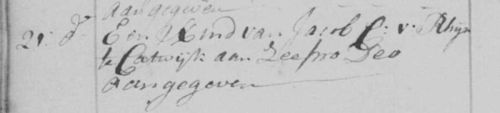 aangegeven
21 d° Een Kind van Jacob C: v: Rhyn
te Catwijk aan Zee pro Deo
aangegeven